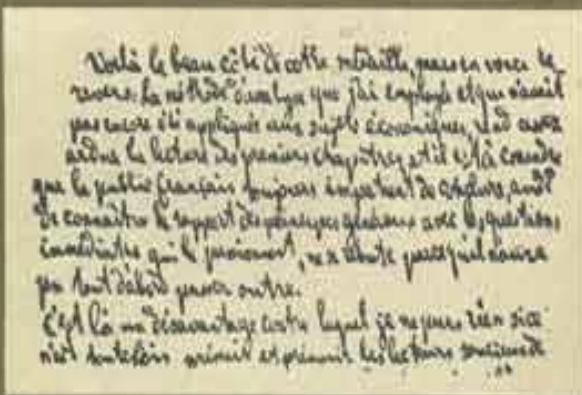 Voilà le beau côté de votre médaille, mais en voici le
revers: La méthode d'analyse que j'ai employée et qui n'avait
pas encore été appliquée aux sujets économiques, rend assez
ardue la lecture des premiers chapitres, et il est à craindre
que le public français toujours impatient de conclure, avide
de connaître le rapport des principes généraux avec les questions
immédiates qui le passionnent, ne se rebute parce qu'il n'aura
pu tout d'abord passer outre.
C'est là un désavantage contre lequel je ne puis rien si ce
n'est toutefois prévenir et prémunir les lecteurs soucieux de